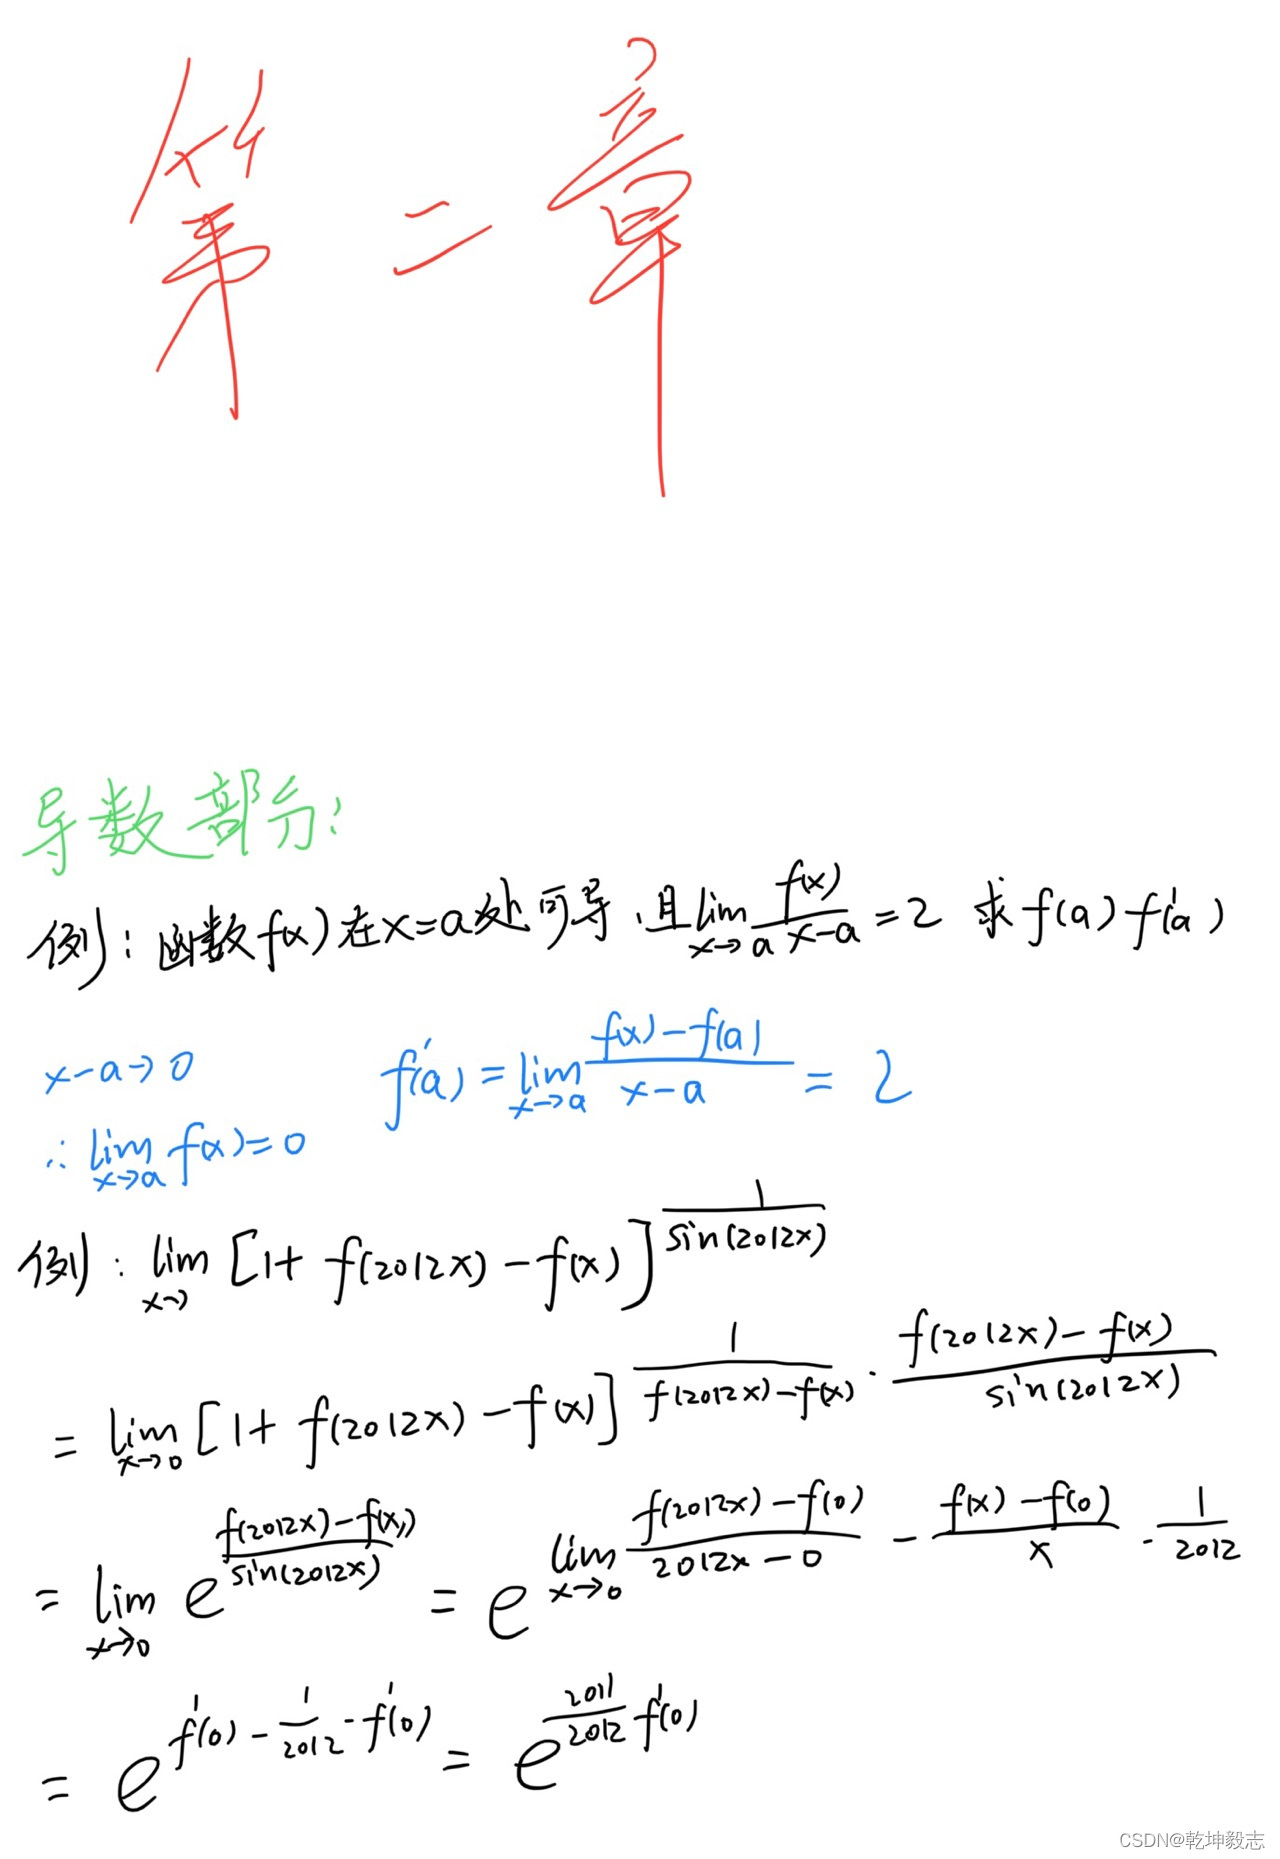 第二章
导数部分:
例:函数f(x)在x=a处可导,且lim_{x→a} f(x)/(x-a) = 2 求f(a) f'(a)
x-a→0 f'(a) = lim_{x→a} (f(x)-f(a))/(x-a) = 2
∴ lim_{x→a} f(x) = 0
例: lim_{x→} [1+f(2012x)-f(x)]^{1/sin(2012x)}
= lim_{x→0} [1+f(2012x)-f(x)]^{1/(f(2012x)-f(x)) · (f(2012x)-f(x))/sin(2012x)}
= lim_{x→0} e^{(f(2012x)-f(x))/sin(2012x)} = e^{lim_{x→0} (f(2012x)-f(0))/(2012x-0) - (f(x)-f(0))/x · 1/2012}
= e^{f'(0) - 1/2012 · f'(0)} = e^{2011/2012 f'(0)}
CSDN@乾坤毅志